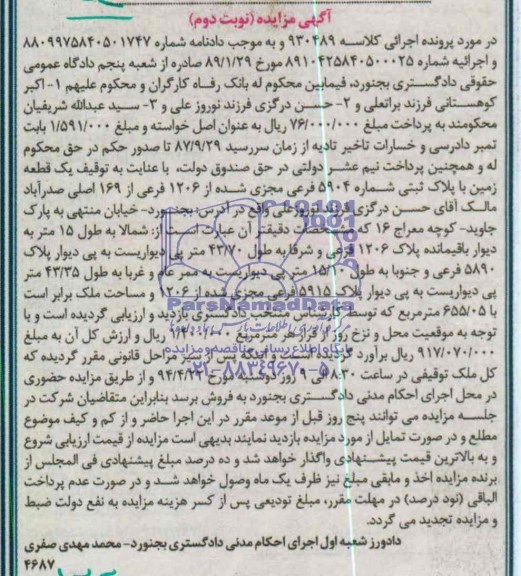 آگهی مزایده (نوبت دوم)
در مورد پرونده اجرائی کلاسه ۹۳۰۴۸۹ و به موجب دادنامه شماره ۸۸۰۹۹۷۵۸۴۰۵۰۱۷۴۷
و اجرائیه شماره ۸۹۱۰۴۲۵۸۴۰۵۰۰۰۲۵ مورخ ۸۹/۱/۲۹ صادره از شعبه پنجم دادگاه عمومی
حقوقی دادگستری بجنورد، فیمابین محکوم له بانک رفاه کارگران و محکوم علیهم ۱- اکبر
کوهستانی فرزند براتعلی و ۲- حسن درگزی فرزند نوروز علی و ۳- سید عبدالله شریفیان
محکومند به پرداخت مبلغ ۷۶/۰۰۰/۰۰۰ ریال به عنوان اصل خواسته و مبلغ ۱/۵۹۱/۰۰۰ بابت
تمبر دادرسی و خسارات تاخیر تادیه از زمان سررسید ۸۷/۹/۲۹ تا صدور حکم در حق محکوم
له و همچنین پرداخت نیم عشر دولتی در حق صندوق دولت، با عنایت به توقیف یک قطعه
زمین با پلاک ثبتی شماره ۵۹۰۴ فرعی مجزی شده از ۱۲۰۶ فرعی از ۱۶۹ اصلی صدرآباد
مالک آقای حسن درگزی فرزند نوروزعلی واقع در آدرس: بجنورد- خیابان منتهی به پارک
جاوید- کوچه معراج ۱۶ که مشخصات دقیقتر آن عبارت است از: شمالا به طول ۱۵ متر به
دیوار باقیمانده پلاک ۱۲۰۶ فرعی و شرقا به طول ۴۳/۷۰ متر پی دیواریست به پی دیوار پلاک
۵۸۹۰ فرعی و جنوبا به طول ۱۵/۱۰ متر پی دیواریست به ممر عام و غربا به طول ۴۳/۳۵ متر
پی دیواریست به پی دیوار پلاک ۵۹۱۵ فرعی مجزی شده از ۱۲۰۶ و مساحت ملک برابر است
با ۶۵۵/۰۵ مترمربع که توسط کارشناس منتخب دادگستری بازدید و ارزیابی گردیده است و با
توجه به موقعیت محل و نرخ روز از قرار هر مترمربع ریال و ارزش کل آن به مبلغ
۹۱۷/۰۷۰/۰۰۰ ریال برآورد گردیده است و اینکه پس از سیر مراحل قانونی مقرر گردیده که
کل ملک توقیفی در ساعت ۸:۳۰ الی ۹ روز دوشنبه مورخ و از طریق مزایده حضوری
در محل اجرای احکام مدنی دادگستری بجنورد به فروش برسد بنابراین متقاضیان شرکت در
جلسه مزایده می توانند پنج روز قبل از موعد مقرر در این اجرا حاضر و از کم و کیف موضوع
مطلع و در صورت تمایل از مورد مزایده بازدید نمایند بدیهی است مزایده از قیمت ارزیابی شروع
و به بالاترین قیمت پیشنهادی واگذار خواهد شد و ده درصد مبلغ پیشنهادی فی المجلس از
برنده مزایده اخذ و مابقی مبلغ نیز ظرف یک ماه وصول خواهد شد و در صورت عدم پرداخت
الباقی (نود درصد) در مهلت مقرر، مبلغ تودیعی پس از کسر هزینه مزایده به نفع دولت ضبط
و مزایده تجدید می گردد.
دادورز شعبه اول اجرای احکام مدنی دادگستری بجنورد- محمد مهدی صفری
۴۶۸۷
ParsNamadData
پایگاه اطلاع رسانی مناقصه و مزایده
۰۲۱-۸۸۳۴۹۶۷۰-۵